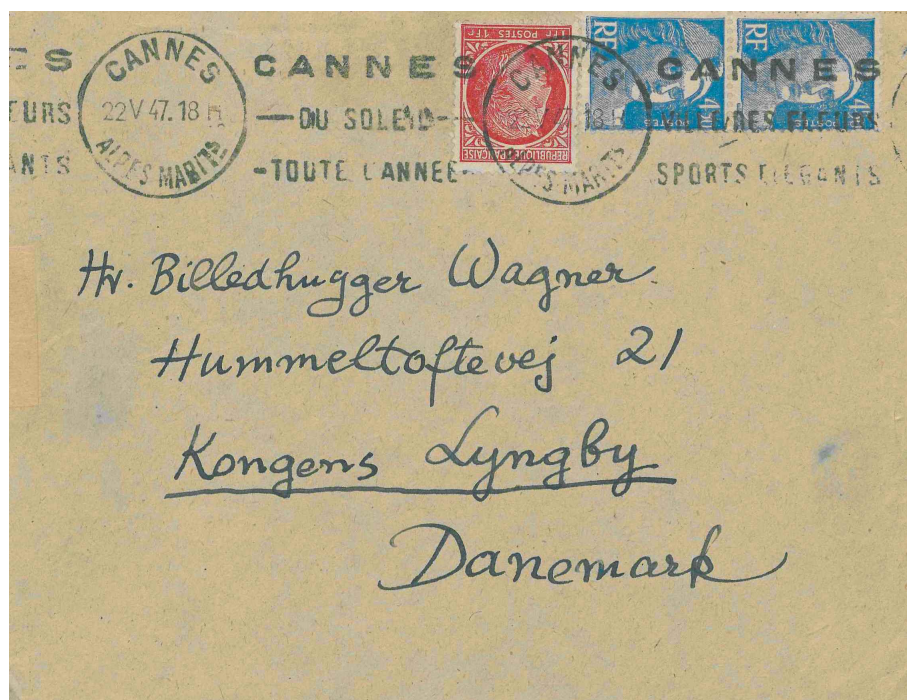 ES
EURS
ANTS
CANNES
22 V 47. 18 H
ALPES MARITS
CANNES
—DU SOLEIL—
-TOUTE L'ANNEE-
1FR POSTES 1FR
REPUBLIQUE FRANÇAISE
CANNES
18 H
ALPES MARITS
RF
POSTES
RF
POSTES
CANNES
VILLE DES FLEURS
SPORTS ELEGANTS
Hr. Billedhugger Wagner
Hummeltoftevej 21
Kongens Lyngby
Danemark